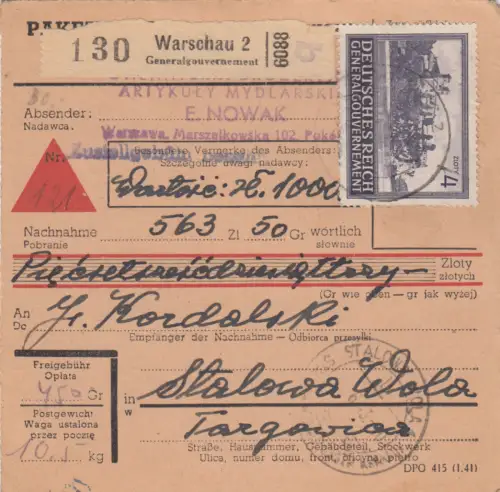 PAKET
130 Warschau 2
Generalgouvernement
8809
DEUTSCHES REICH
GENERALGOUVERNEMENT
4 ZŁOTY
ARTYKUŁY MYDLARSKIE
E. NOWAK
Warszawa, Marszałkowska 102
Absender:
Nadawca:
Nr.
121
Besondere Vermerke des Absenders:
Szczególne uwagi nadawcy:
Wartość: zł. 1000
Nachnahme 563 Zl 50 Gr wörtlich
Pobranie słownie
Pięćsetsześćdziesiąttrzy — Zloty
złotych
(Gr wie oben—gr jak wyżej)
An J. Kordalski
Do
Empfänger der Nachnahme - Odbiorca przesyłki
Freigebühr
Opłata
450 Gr
Postgewicht
Waga ustalona
przez pocztę
10,- kg
in Stalowa Wola
w
Targowica
STALOWA WOLA
Straße, Hausnummer, Gebäudeteil, Stockwerk
Ulica, numer domu, front, oficyna, piętro
DPO 415 (1.41)